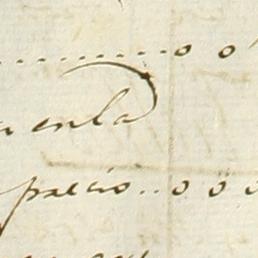 ..........o o
enla
precio..o o o